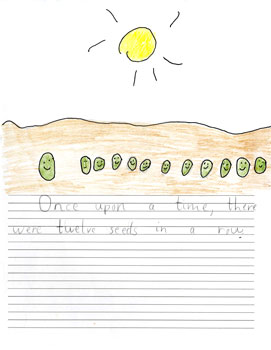 Once upon a time, there
were twelve seeds in a row.